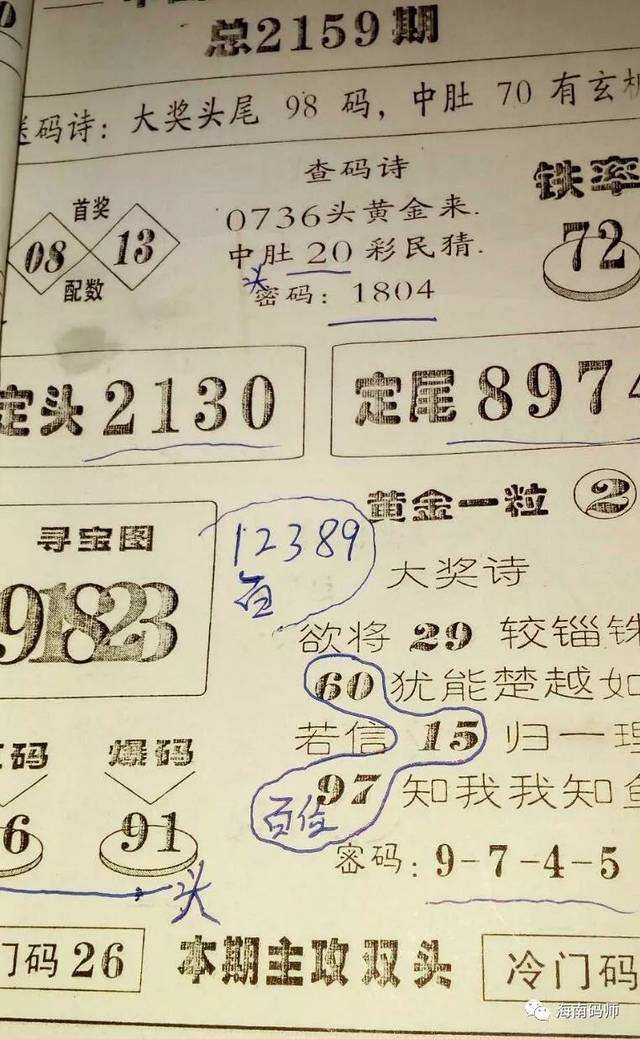 总2159期
送码诗：大奖头尾 98 码，中肚 70 有玄机
查码诗
铁率
首奖
0736头黄金来.
08 13
72
中肚 20 彩民猜.
配数
头
密码：1804
定头 2130
定尾 8974
黄金一粒 2
寻宝图
12389
百
91823
大奖诗
欲将 29 较锱铢
60 犹能楚越如
若信 15 归一理
97 知我我知鱼
百位
码 爆码
6 91
密码：9-7-4-5
头
门码 26
本期主攻双头
冷门码
海南码师